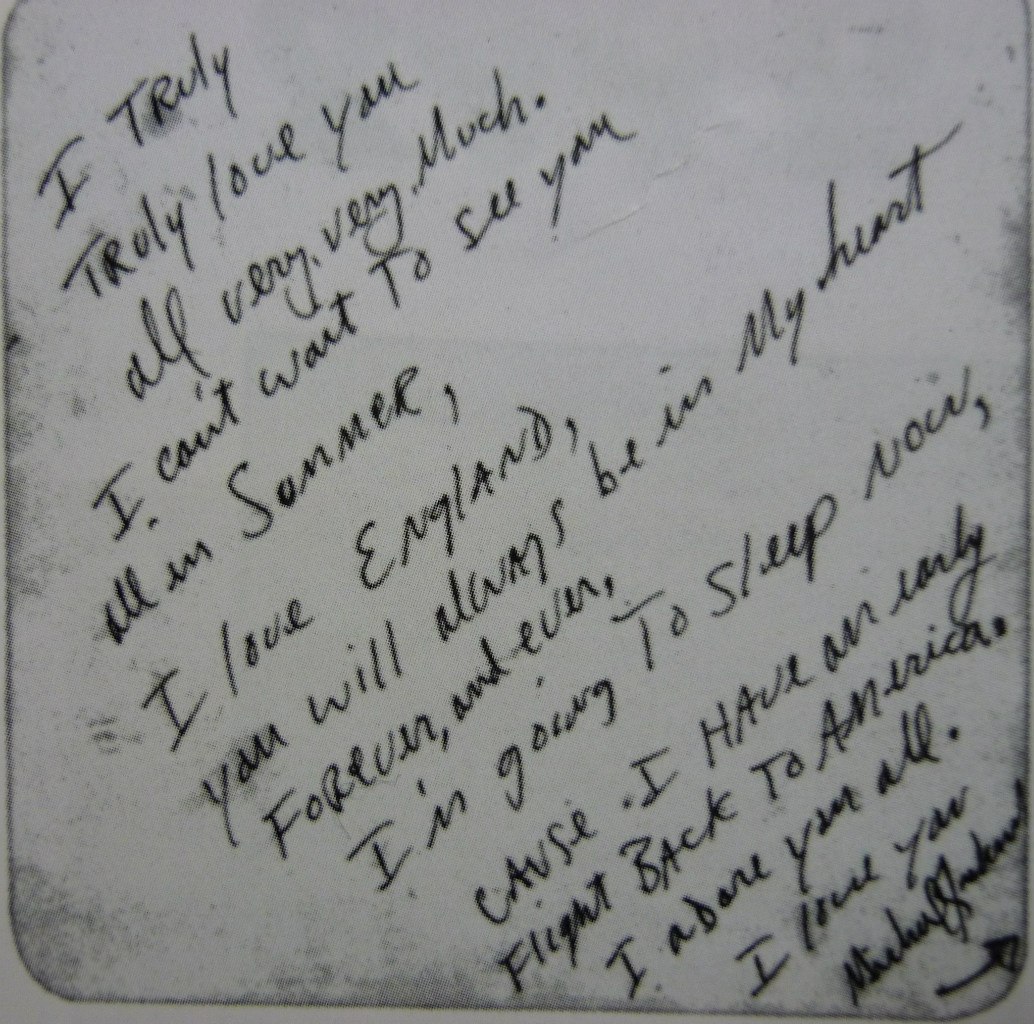 I TRuly
TRuly love you
all very, very, Much.
I can't wait To see you
all in Summer,
I love England,
you will always be in My heart
Forever, and ever,
I'm going To sleep now,
cause I Have an early
Flight Back To America.
I adore you all.
I love you
Michael Jackson